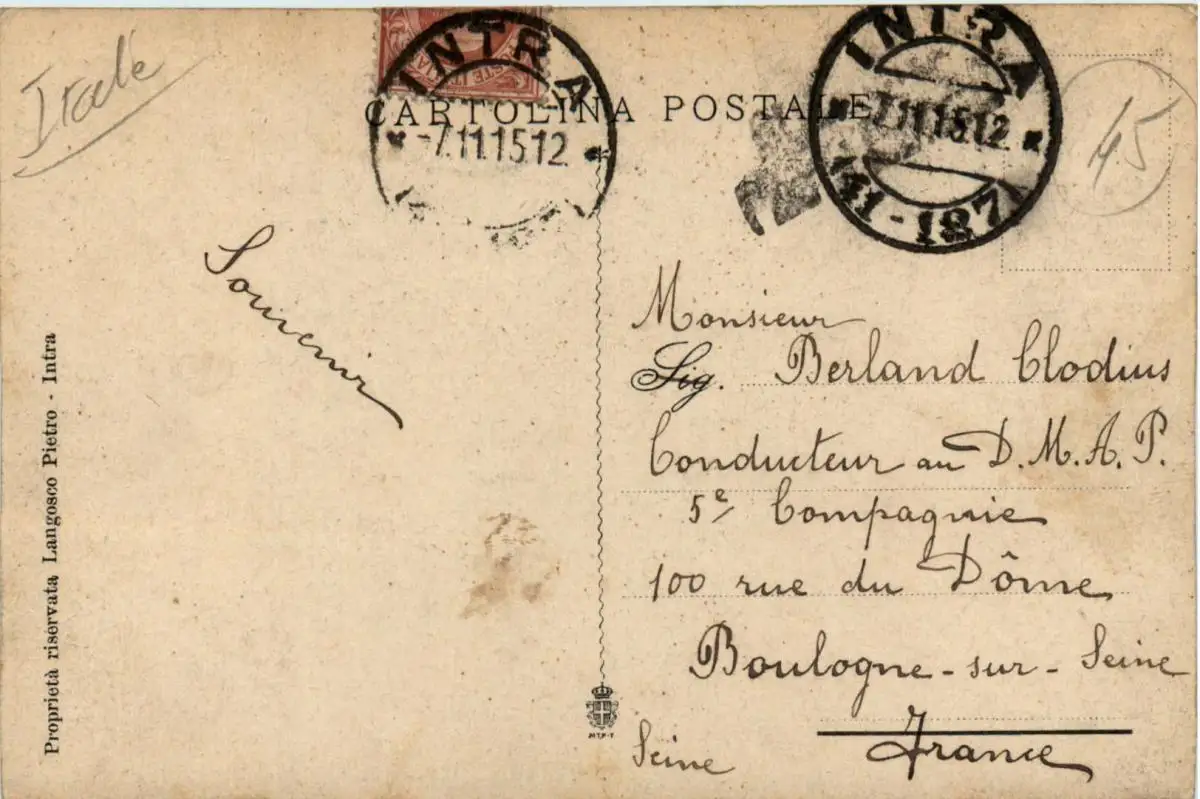 Itale
INTRA
CARTOLINA POSTALE
-7.11.15 12
INTRA
-7.11.15 12
(41-187)
45
Souvenir
Proprietà riservata Langosco Pietro - Intra
Monsieur
Sig. Berland Clodius
Conducteur au D. M. A. P.
5e Compagnie
100 rue du Dôme
Boulogne-sur-Seine
Seine
France